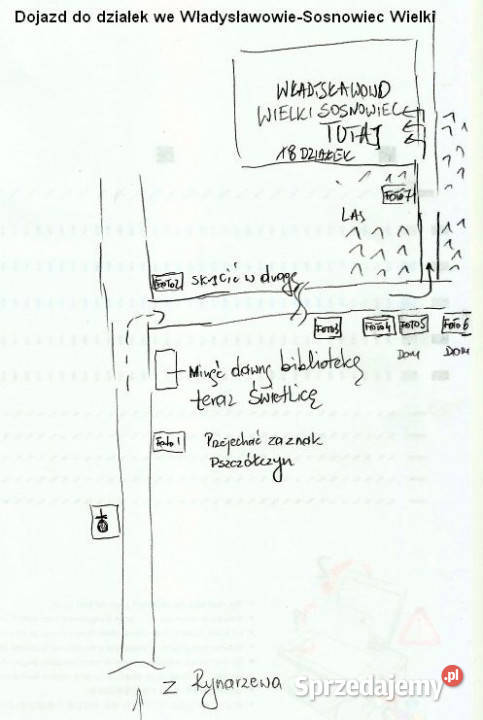 Dojazd do działek we Władysławowie-Sosnowiec Wielki
WŁADYSŁAWOWO
WIELKI SOSNOWIEC
TUTAJ
18 DZIAŁEK
FOTO 7
LAS
FOTO 2 SKRĘCIĆ W drogę
FOTO 3 FOTO 4 FOTO 5 FOTO 6
DOM DOM
Minąć dawną bibliotekę
teraz Świetlicę
Foto 1 Przejechać za znak
Pszczółczyn
Z Rynarzewa
Sprzedajemy.pl